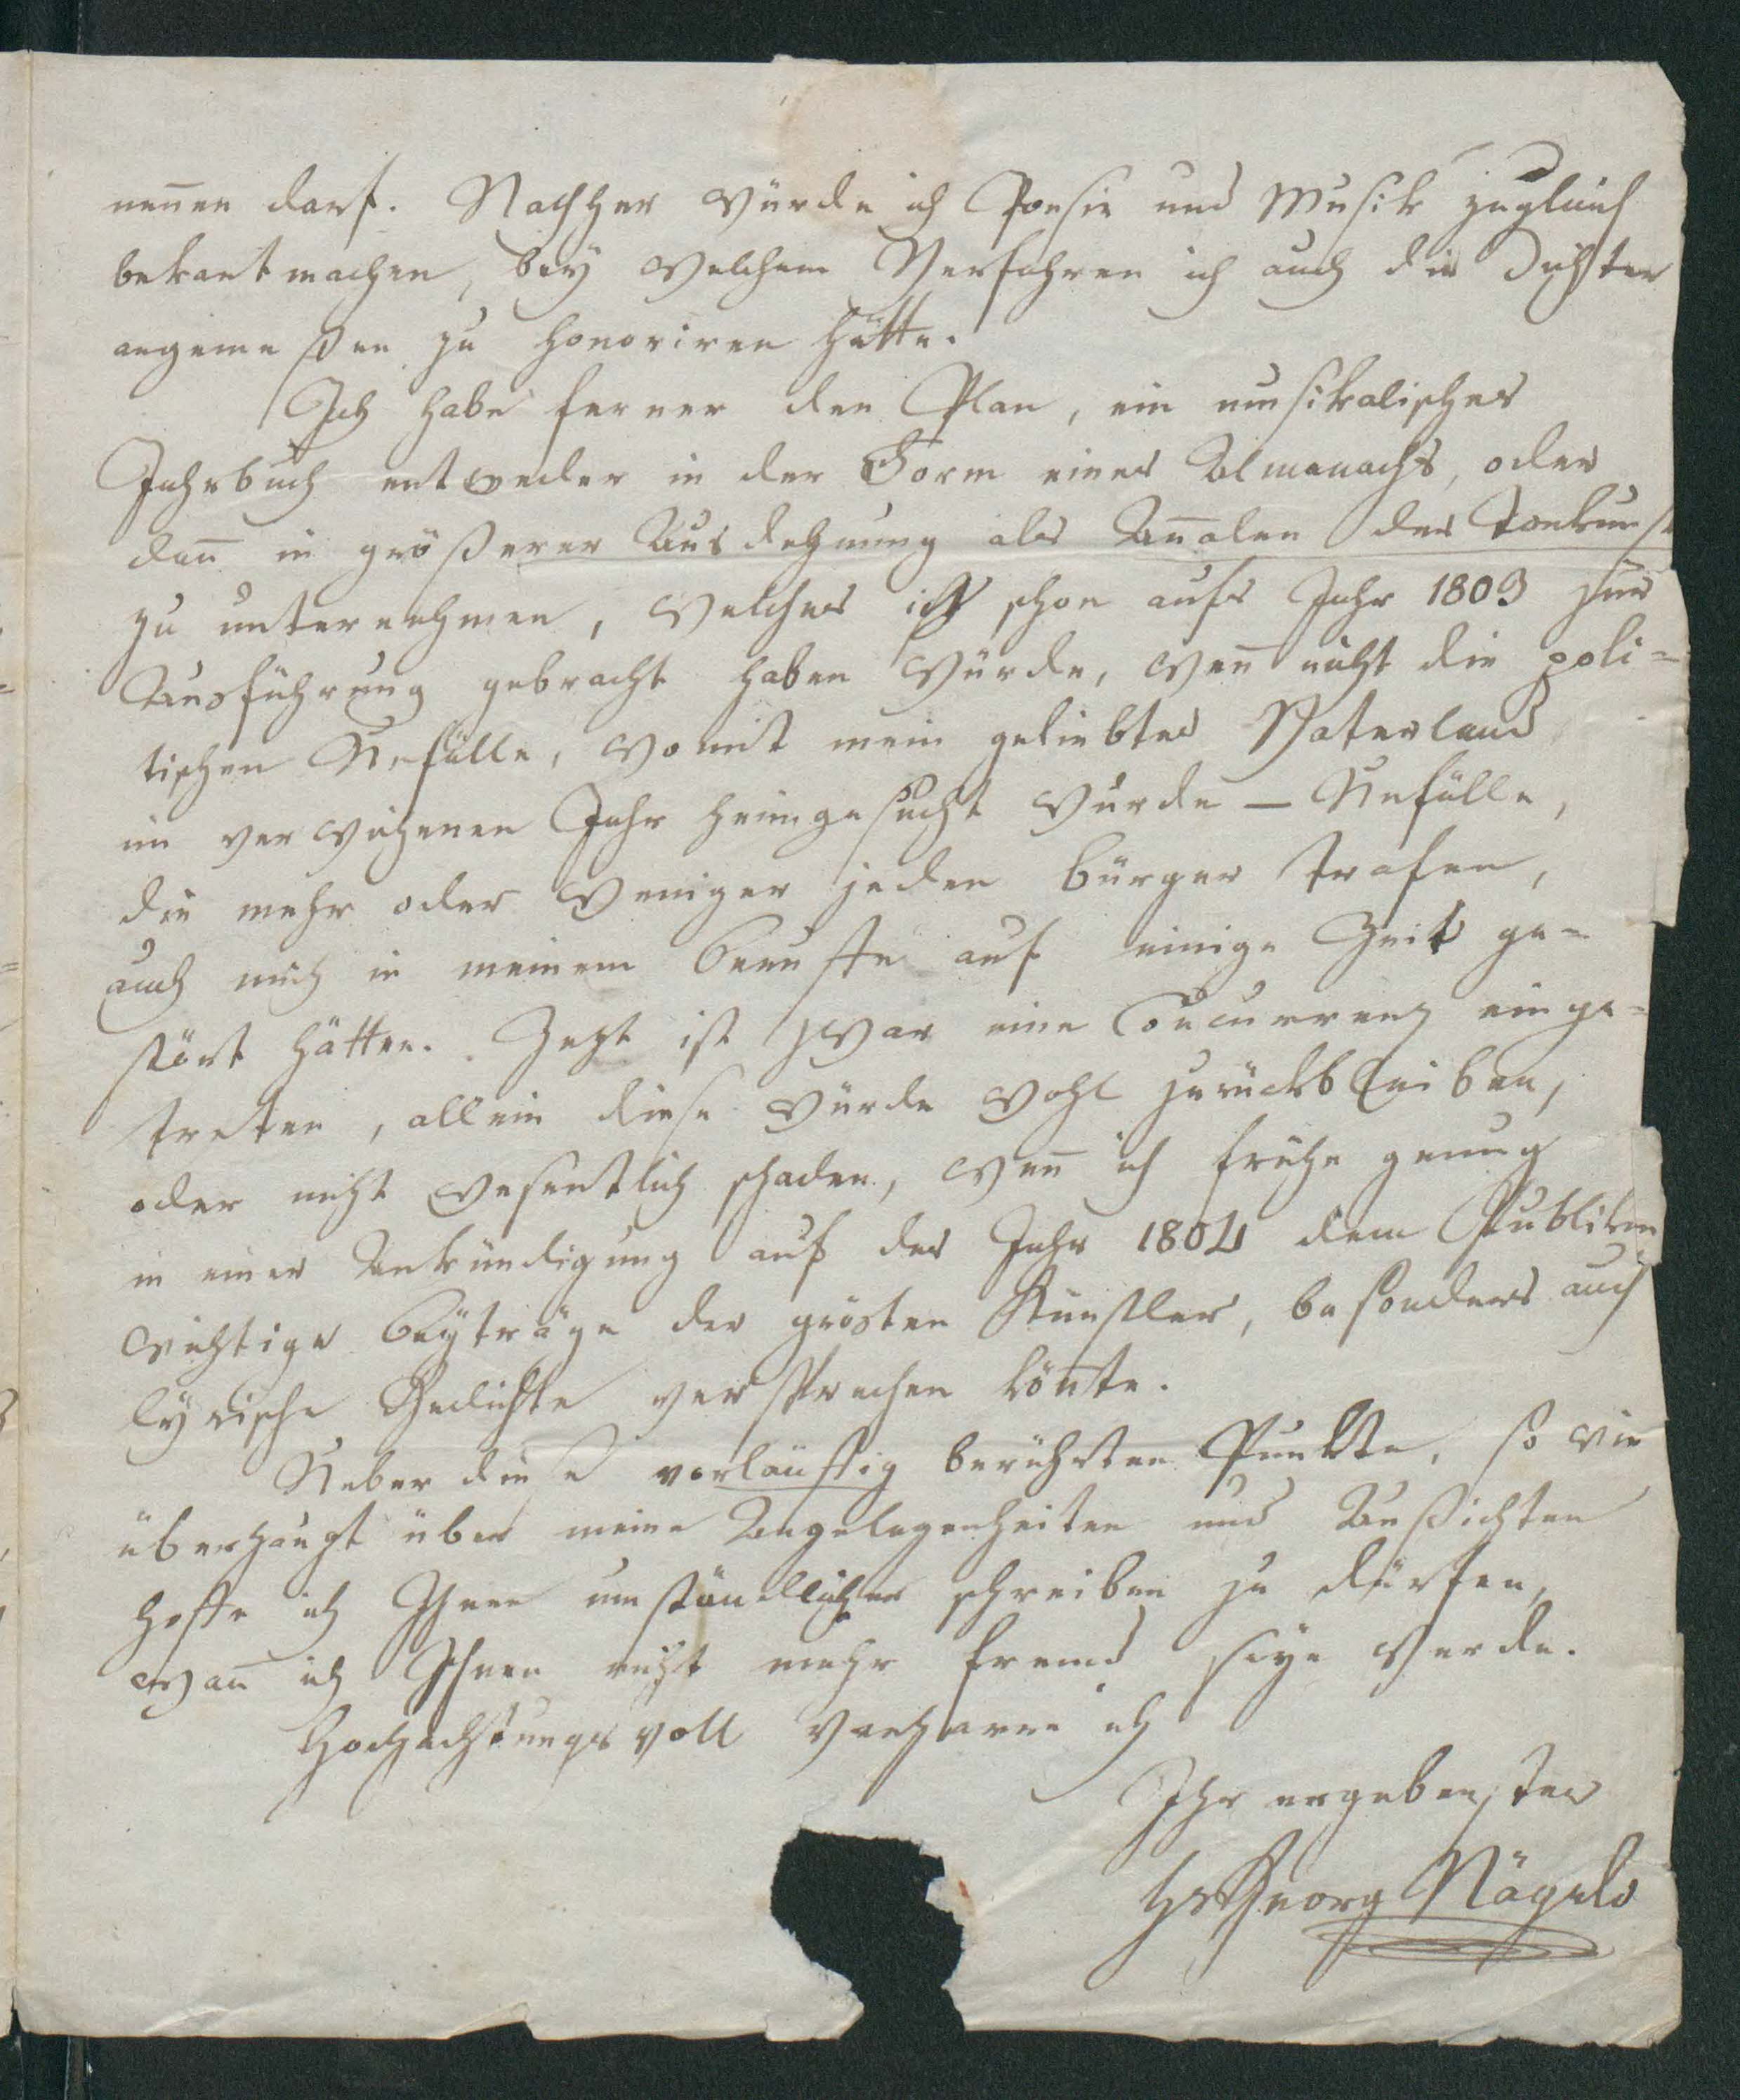 nen̄en darf. Nachher würde ich Poesie und Musik zugleich
bekant machen, bey welchem Verfahren ich auch die Dichter
angemeßen zu honoriren hätte.
Ich habe ferner den Plan, ein musikalisches
Jahrbuch entweder in der Form eines Almanachs, oder
dan̄ in größerer Ausdehnung als An̄alen der Tonkunst
zu unternehmen, welches ich schon aufs Jahr 1803 zur
Ausführung gebracht haben würde, wen̄ nicht die poli=
tischen Unfälle, womit mein geliebtes Vaterland
im verwichenen Jahr heimgesucht wurde – Unfälle,
die mehr oder weniger jeden Bürger trafen,
auch mich in meinem Beruffe auf einige Zeit ge=
stört hätten. Jezt ist zwar eine Concurrenz einge=
treten, allein diese würde wohl zurückbleiben,
oder nicht wesentlich schaden, wen̄ ich frühe genug
in einer Ankündigung auf das Jahr 1804 dem Publikum
wichtige Beyträge der grösten Künstler, besonders auch
lyrische Gedichte versprechen kön̄te.
Ueber diese vorläuffig berührten Punkte, so wie
überhaupt über meine Angelegenheiten und Außichten
hoffe ich Ihnen umständlicher schreiben zu dürfen,
wan̄ ich Ihnen nicht mehr fremd seyn werde.
Hochachtungsvoll verharre ich
Ihr ergebenster
Hs Georg Nägeli